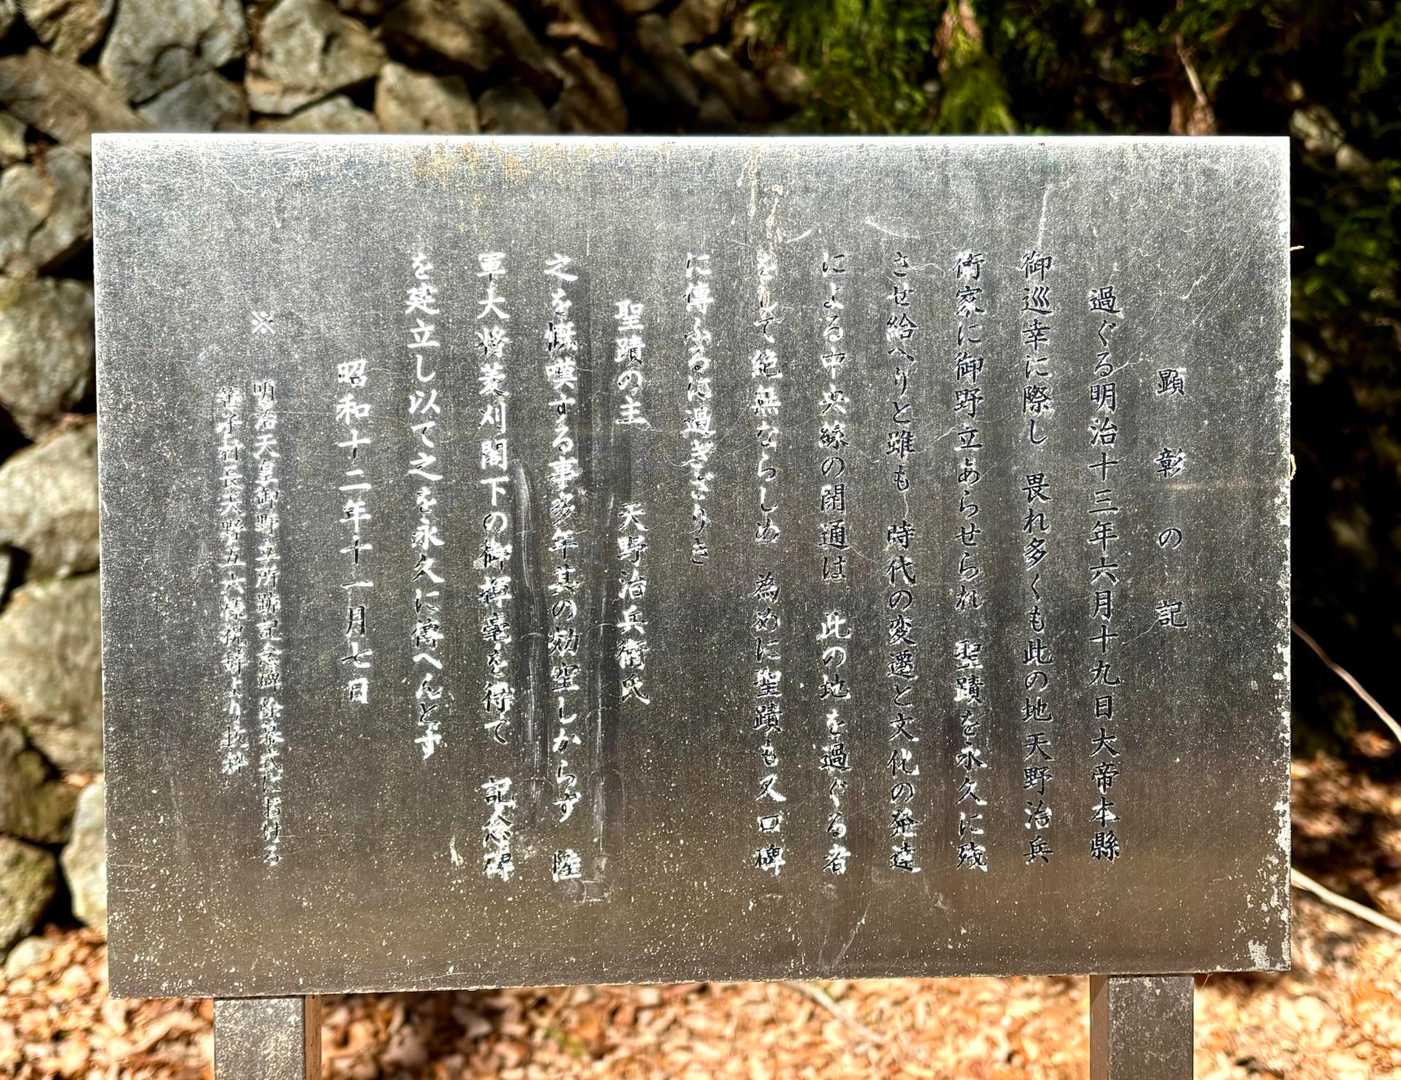 顕彰の記
過ぐる明治十三年六月十九日大帝本縣
御巡幸に際し 畏れ多くも此の地天野治兵
衛家に御野立あらせられ 聖蹟を永久に残
させ給へりと雖も 時代の変遷と文化の発達
による中央線の開通は 此の地を過ぐる者
をして絶無ならしめ 為めに聖蹟も又口碑
に傳ふるに過ぎざりき
聖蹟の主 天野治兵衛氏
之を慨嘆する事多年其の効空しからず 陸
軍大将菱刈閣下の御揮毫を得て 記念碑
を建立し以て之を永久に傳へんとす
昭和十二年十一月七日
※ 明治天皇御野立所跡記念碑除幕式に於ける
村長天野五六